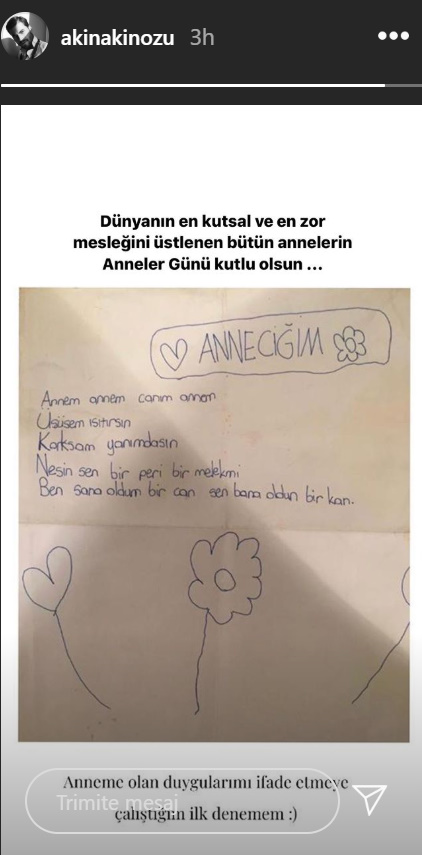 akinakinozu 3h
Dünyanın en kutsal ve en zor
mesleğini üstlenen bütün annelerin
Anneler Günü kutlu olsun ...
ANNECİĞİM
Annem annem canım annem
Üşüsem ısıtırsın
Korksam yanımdasın
Nesin sen bir peri bir melekmi
Ben sana oldum bir can sen bana oldun bir kan.
Anneme olan duygularımı ifade etmeye
Trimite mesaj
çalıştığım ilk denemem :)